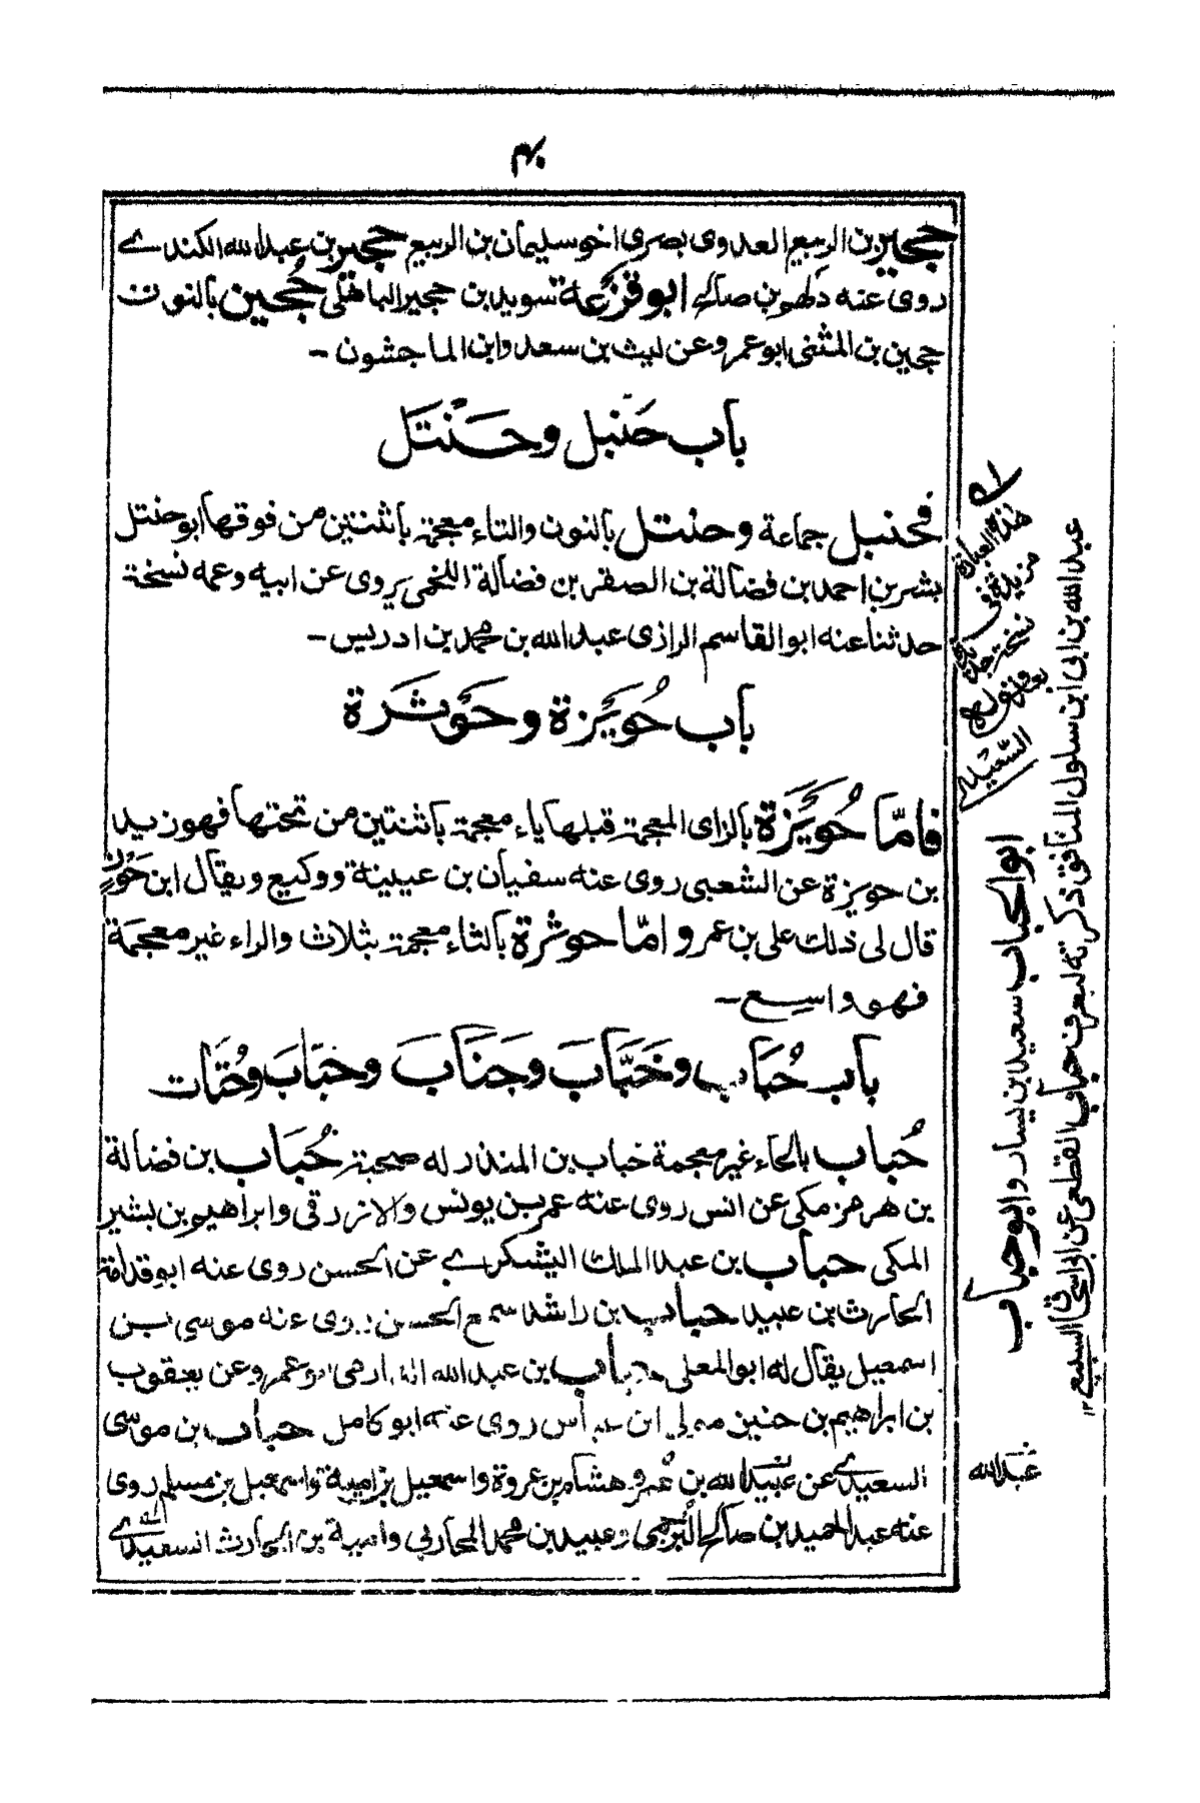 ۴۰
حجير بن الربيع العدوى بصرى اخو سليمان بن الربيع حجير بن عبدالله الكندے
روى عنه دلهم بن صالح ابو قزعة سويد بن حجير الباهلى حُجين بالنون
حجين بن المثنى ابو عمرو عن ليث بن سعد وابن الماجشون ـ
باب حَنبل وحَنْتَل
فحنبل جماعة وحنتل بالنون والتاء معجمة باثنتين من فوقها ابو حنتل
بشر بن احمد بن فضالة بن الصقر بن فضالة اللخمى يروى عن ابيه وعمه نسخة
حدثنا عنه ابو القاسم الرازى عبدالله بن محمد بن ادريس ـ
باب حُوَيْزة وحَوْثَرة
فامّا حُوَيْزَة بالزاى المعجمة قبلها ياء معجمة باثنتين من تحتها فهو زيد
بن حويزة عن الشعبى روى عنه سفيان بن عيينة ووكيع ويقال ابن
قال لى ذلك على بن عمر و امّا حوثرة بالثاء معجمة بثلاث والراء غير معجمة
فهو واسع ـ
باب حُبَاب وخَبَّاب وجَنَاب وخبَاب وحُتَات
حُباب بالحاء غير معجمة خباب بن المنذر له صحبة حُبَاب بن فضالة
بن هرمز مكى عن انس روى عنه عمر بن يونس والازرقى وابراهيم بن بشير
المكى حباب بن عبد الملك اليشكرے عن الحسن روى عنه ابو قدامة
الحارث بن عبيد حباب بن راشد سمع الحسن روى عنه موسى بن
اسمعيل يقال له ابو المعلى حباب بن عبدالله عمرو عن يعقوب
بن ابراهيم بن حنين مولى ابن عباس روى عنه ابو كامل حباب بن موسى
السعيدے عن عبيد الله بن عمر وهشام بن عروة واسمعيل بن امية واسمعيل بن مسلم روى
عنه عبد الحميد بن صالح البرجمى وعبيد بن محمد المحاربى وامية بن الحارث السعيدے
هذه العبارة
مزيدة فى
نسخة
السعيدية
ابو الحباب سعيد بن يسار وابو حباب
عبد الله بن ابى ابن سلول المنافق ذكرته ليعرف حباب القطعى عن ابى اسحاق السبيعى ١٢
عبدالله